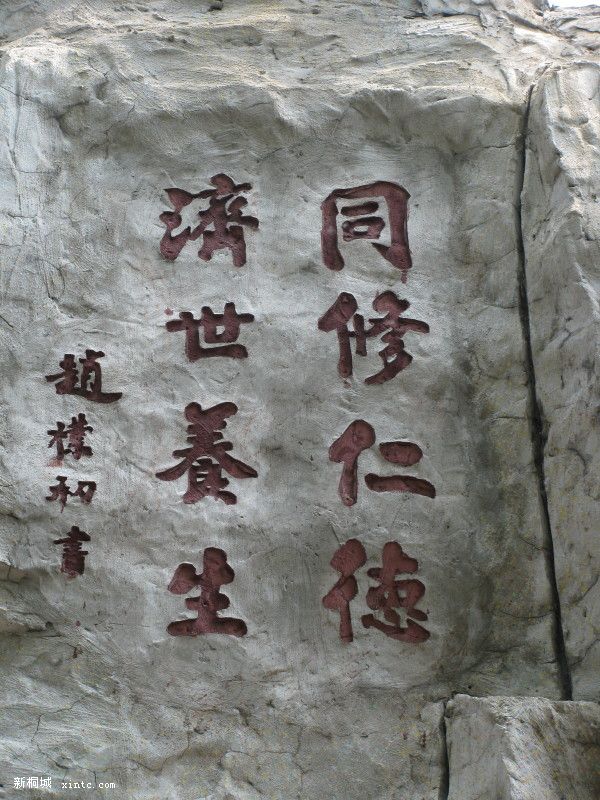 同修仁德
濟世養生
趙樸初書
新桐城 xintc.com